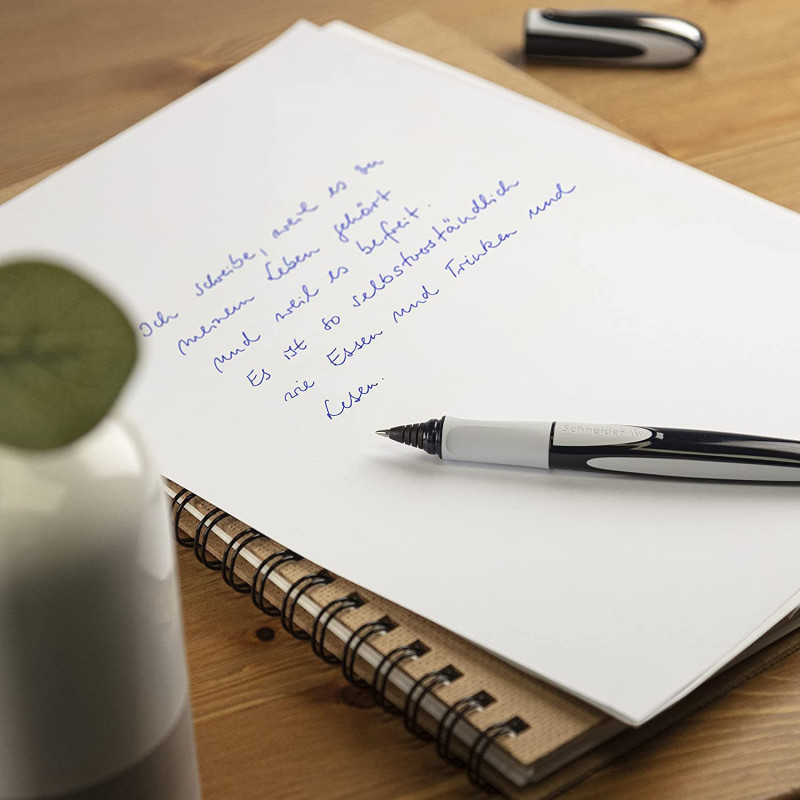 Ich schreibe, weil es zu
meinem Leben gehört
und weil es befreit.
Es ist so selbstverständlich
wie Essen und Trinken und
Lesen.
Schneider